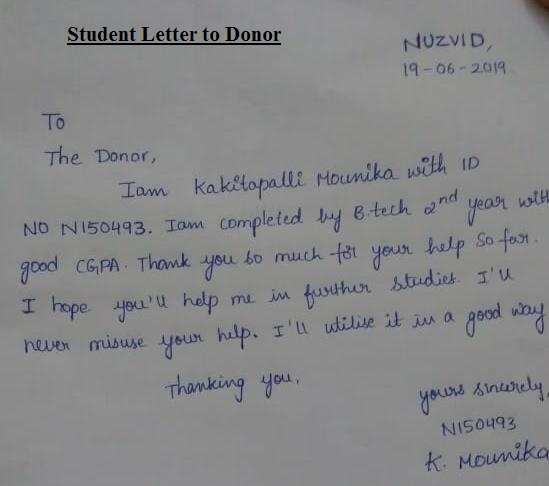 Student Letter to Donor
NUZVID,
19-06-2019
To
The Donor,
Iam Kakitapalli Mounika with ID
NO N150493. Iam completed by B.tech 2nd year with
good CGPA. Thank you so much for your help so far.
I hope you'll help me in further studies. I'll
never misuse your help. I'll utilise it in a good way
Thanking you,
yours sincerely,
N150493
K. Mounika